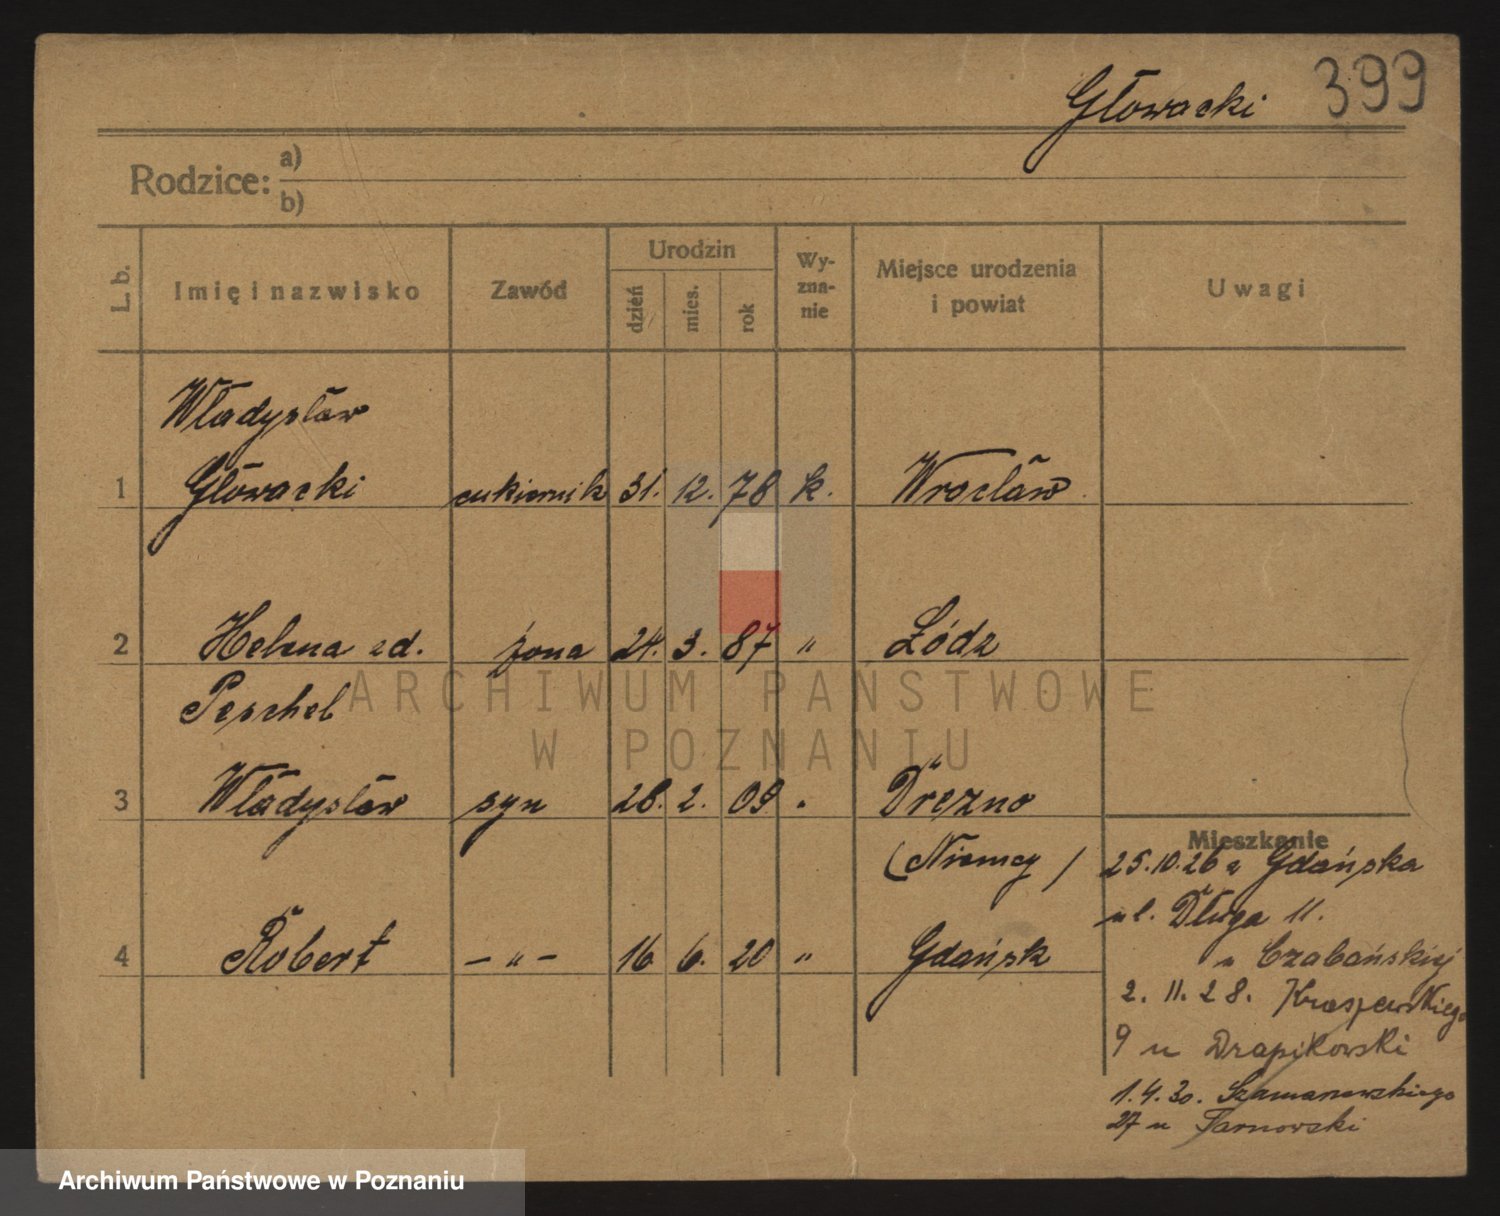 Głowacki 399
Rodzice: a)
b)
L. b. Imię i nazwisko Zawód Urodzin dzień mies. rok Wy-zna-nie Miejsce urodzenia i powiat Uwagi
Władysław
1 Głowacki cukiernik 31. 12. 78 k. Wrocław
2 Helena zd. żona 24. 3. 87 " Łódz
Peschel
ARCHIWUM PAŃSTWOWE
W POZNANIU
3 Władysław syn 28. 2. 09 " Drezno
Mieszkanie
(Niemcy) 25.10.26 z Gdańska
ul. Długa 11.
4 Robert – " – 16 6. 20 " Gdańsk
u Czabańskiej
2. 11. 28. Kraszewskiego
9 u Drapikowski
1.4.30. Szamarzewskiego
27 u Tarnowski
Archiwum Państwowe w Poznaniu